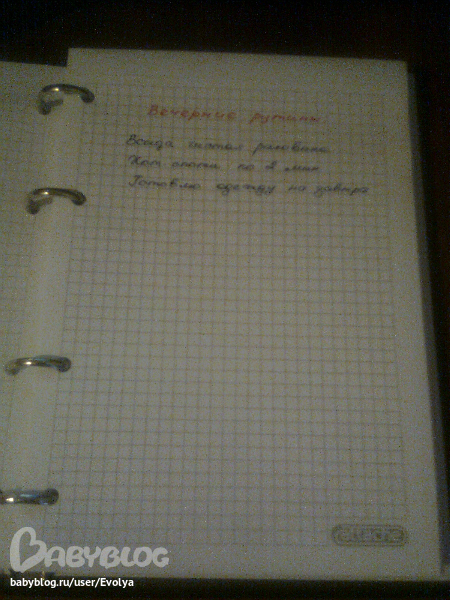 Вечерние рутины
Всегда чистая раковина
Хот споты по 2 мин
Готовлю одежду на завтра
attache
BABYBLOG
babyblog.ru/user/Evolya